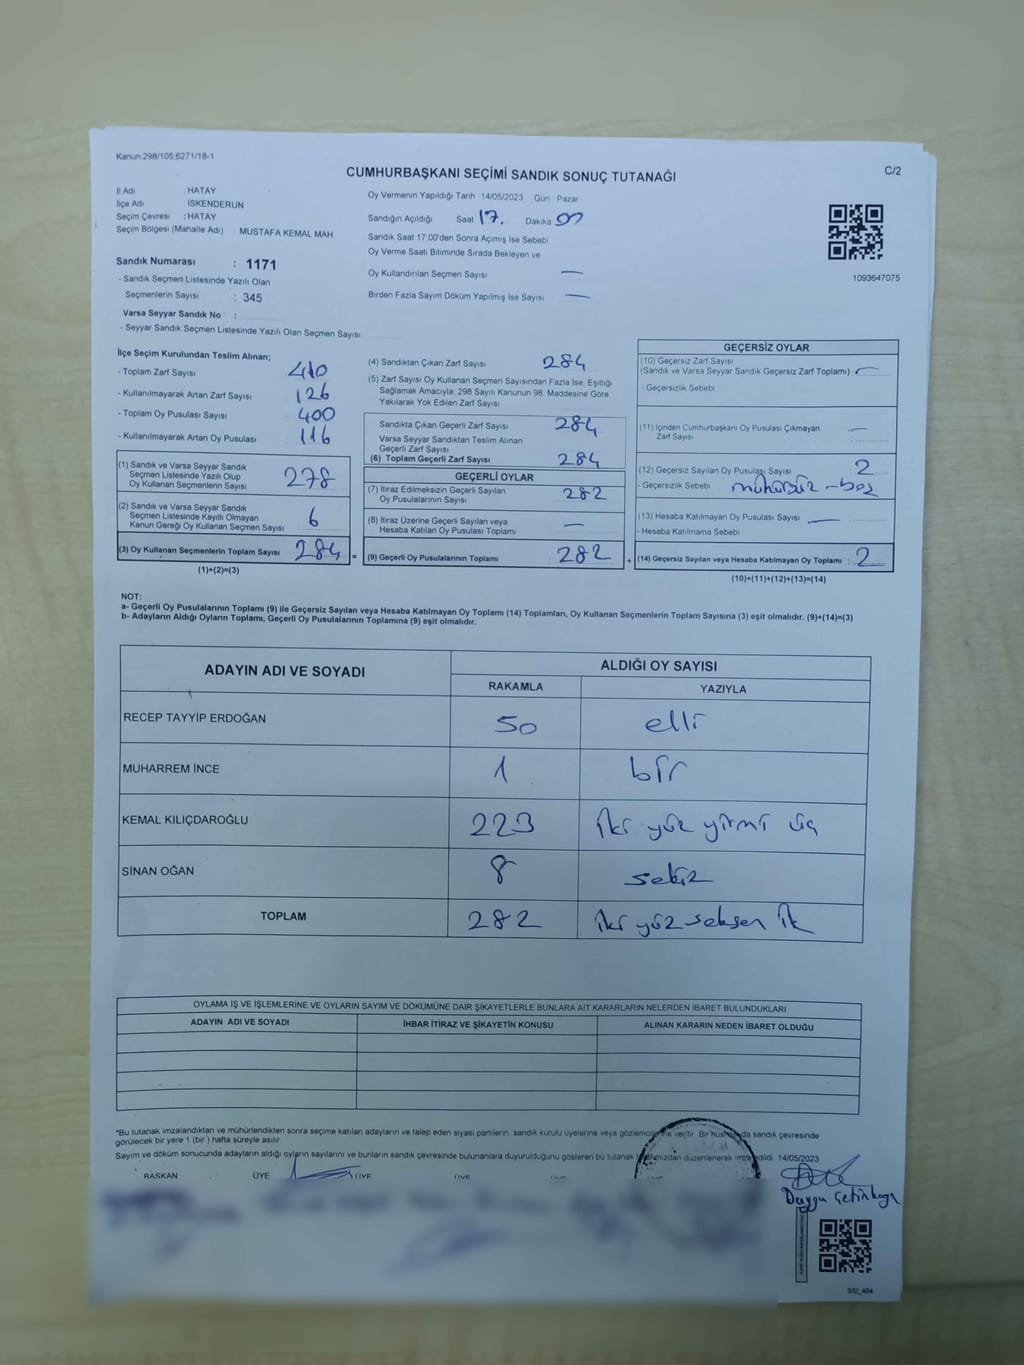 Kanun:298/105,6271/18-1
CUMHURBAŞKANI SEÇİMİ SANDIK SONUÇ TUTANAĞI
C/2
İl Adı : HATAY
İlçe Adı : İSKENDERUN
Seçim Çevresi : HATAY
Seçim Bölgesi (Mahalle Adı) : MUSTAFA KEMAL MAH.
Oy Vermenin Yapıldığı Tarih 14/05/2023 Gün Pazar
Sandığın Açıldığı Saat 17. Dakika 00
Sandık Saat 17:00'den Sonra Açımış İse Sebebi
Oy Verme Saati Bitiminde Sırada Bekleyen ve
Oy Kullandırılan Seçmen Sayısi —
Birden Fazla Sayım Döküm Yapılmış İse Sayısı —
1093647075
Sandık Numarası : 1171
- Sandık Seçmen Listesinde Yazılı Olan
Seçmenlerin Sayısı : 345
Varsa Seyyar Sandık No :
- Seyyar Sandık Seçmen Listesinde Yazılı Olan Seçmen Sayısı
İlçe Seçim Kurulundan Teslim Alınan;
- Toplam Zarf Sayısı 410
- Kullanılmayarak Artan Zarf Sayısı 126
- Toplam Oy Pusulası Sayısı 400
- Kullanılmayarak Artan Oy Pusulası 116
(1) Sandık ve Varsa Seyyar Sandık
Seçmen Listesinde Yazılı Olup
Oy Kullanan Seçmenlerin Sayısı 278
(2) Sandık ve Varsa Seyyar Sandık
Seçmen Listesinde Kayıtlı Olmayan
Kanun Gereği Oy Kullanan Seçmen Sayısı 6
(3) Oy Kullanan Seçmenlerin Toplam Sayısı 284 =
(1)+(2)=(3)
(4) Sandıktan Çıkan Zarf Sayısı 284
(5) Zarf Sayısı Oy Kullanan Seçmen Sayısından Fazla İse, Eşitliği
Sağlamak Amacıyla, 298 Sayılı Kanunun 98. Maddesine Göre
Yakılarak Yok Edilen Zarf Sayısı
Sandıkta Çıkan Geçerli Zarf Sayısı 284
Varsa Seyyar Sandıktan Teslim Alınan
Geçerli Zarf Sayısı
(6) Toplam Geçerli Zarf Sayısı 284
GEÇERLİ OYLAR
(7) İtiraz Edilmeksizin Geçerli Sayılan
Oy Pusulalarının Sayısı 282
(8) İtiraz Üzerine Geçerli Sayılan veya
Hesaba Katılan Oy Pusulası Toplamı —
(9) Geçerli Oy Pusulalarının Toplamı 282 +
GEÇERSİZ OYLAR
(10) Geçersiz Zarf Sayısı
(Sandık ve Varsa Seyyar Sandık Geçersiz Zarf Toplamı) : —
- Geçersizlik Sebebi
(11) İçinden Cumhurbaşkanı Oy Pusulası Çıkmayan —
Zarf Sayısı
(12) Geçersiz Sayılan Oy Pusulası Sayısı 2
- Geçersizlik Sebebi mühürsüz - boş
(13) Hesaba Katılmayan Oy Pusulası Sayısı —
- Hesaba Katılmama Sebebi
(14) Geçersiz Sayılan veya Hesaba Katılmayan Oy Toplamı : 2
(10)+(11)+(12)+(13)=(14)
NOT:
a- Geçerli Oy Pusulalarının Toplamı (9) ile Geçersiz Sayılan veya Hesaba Katılmayan Oy Toplamı (14) Toplamları, Oy Kullanan Seçmenlerin Toplam Sayısına (3) eşit olmalıdır. (9)+(14)=(3)
b- Adayların Aldığı Oyların Toplamı, Geçerli Oy Pusulalarının Toplamına (9) eşit olmalıdır.
ADAYIN ADI VE SOYADI ALDIĞI OY SAYISI
RAKAMLA YAZIYLA
RECEP TAYYİP ERDOĞAN 50 elli
MUHARREM İNCE 1 bir
KEMAL KILIÇDAROĞLU 223 iki yüz yirmi üç
SİNAN OĞAN 8 sekiz
TOPLAM 282 iki yüz seksen ik
OYLAMA İŞ VE İŞLEMLERİNE VE OYLARIN SAYIM VE DÖKÜMÜNE DAİR ŞİKAYETLERLE BUNLARA AİT KARARLARIN NELERDEN İBARET BULUNDUKLARI
ADAYIN ADI VE SOYADI İHBAR İTİRAZ VE ŞİKAYETİN KONUSU ALINAN KARARIN NEDEN İBARET OLDUĞU
*Bu tutanak imzalandıktan ve mühürlendikten sonra seçime katılan adayların ve talep eden siyasi partilerin sandık kurulu üyelerine veya gözlemcilerine verilir. Bir da sandık çevresinde
görülecek bir yere 1 (bir) hafta süreyle asılır.
Sayım ve döküm sonucunda adayların aldığı oyların sayılarını ve bunların sandık çevresinde bulunanlara duyurulduğunu gösteren bu tutanak düzenlenerek imza edildi. 14/05/2023
BAŞKAN ÜYE ÜYE ÜYE ÜYE
Duygu Çetinkaya
SSI_404